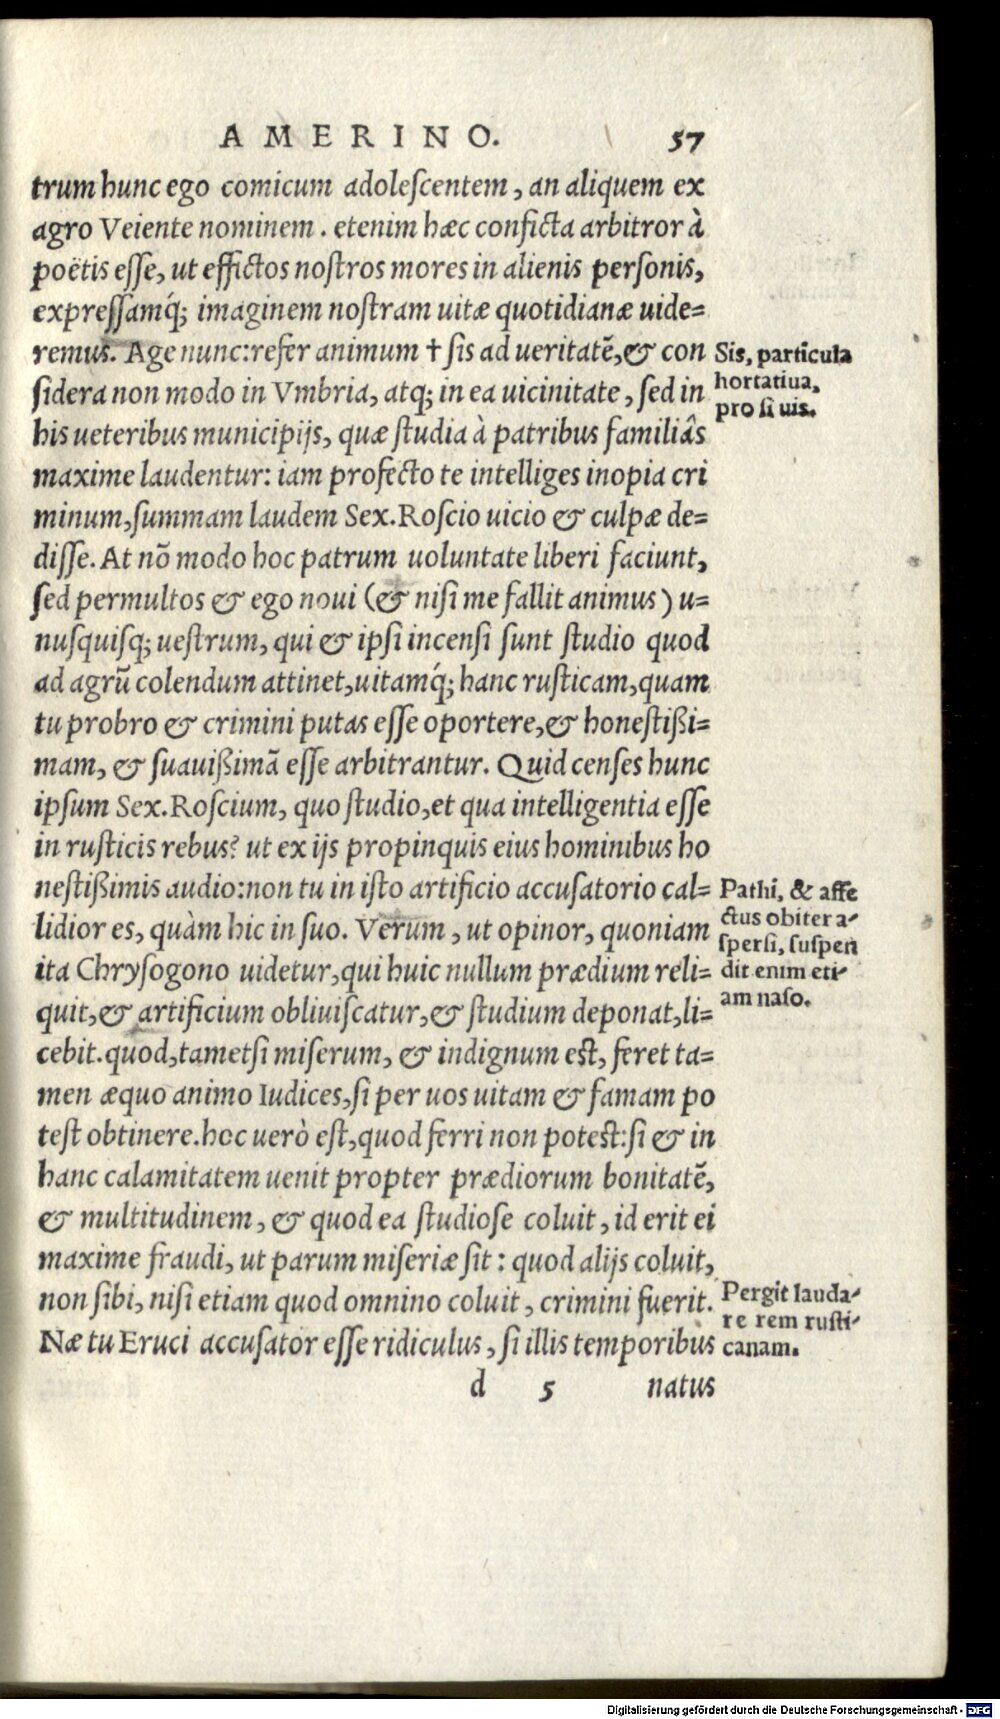 AMERINO. 57
trum hunc ego comicum adolescentem, an aliquem ex
agro Veiente nominem. etenim hæc conficta arbitror à
poëtis esse, ut effictos nostros mores in alienis personis,
expressamq́; imaginem nostram uitæ quotidianæ uide=
remus. Age nunc: refer animum † sis ad ueritatẽ, & con
sidera non modo in Vmbria, atq; in ea uicinitate, sed in
his ueteribus municipijs, quæ studia à patribus familiâs
maxime laudentur: iam profecto te intelliges inopia cri
minum, summam laudem Sex. Roscio uicio & culpæ de=
disse. At nõ modo hoc patrum uoluntate liberi faciunt,
sed permultos & ego noui (& nisi me fallit animus) u=
nusquisq; uestrum, qui & ipsi incensi sunt studio quod
ad agrũ colendum attinet, uitamq́; hanc rusticam, quam
tu probro & crimini putas esse oportere, & honestißi=
mam, & suauißimã esse arbitrantur. Quid censes hunc
ipsum Sex. Roscium, quo studio, et qua intelligentia esse
in rusticis rebus? ut ex ijs propinquis eius hominibus ho
nestißimis audio: non tu in isto artificio accusatorio cal=
lidior es, quàm hic in suo. Verum, ut opinor, quoniam
ita Chrysogono uidetur, qui huic nullum prædium reli=
quit, & artificium obliuiscatur, & studium deponat, li=
cebit. quod, tametsi miserum, & indignum est, feret ta=
men æquo animo Iudices, si per uos uitam & famam po
test obtinere. hoc uerò est, quod ferri non potest: si & in
hanc calamitatem uenit propter prædiorum bonitatẽ,
& multitudinem, & quod ea studiose coluit, id erit ei
maxime fraudi, ut parum miseriæ sit: quod alijs coluit,
non sibi, nisi etiam quod omnino coluit, crimini fuerit.
Næ tu Eruci accusator esse ridiculus, si illis temporibus
d 5 natus
Sis, particula
hortatiua,
pro si uis.
Pathi, & affe
ctus obiter a-
spersi, suspen
dit enim eti-
am naso.
Pergit lauda-
re rem rusti-
canam.
Digitalisierung gefördert durch die Deutsche Forschungsgemeinschaft - DFG